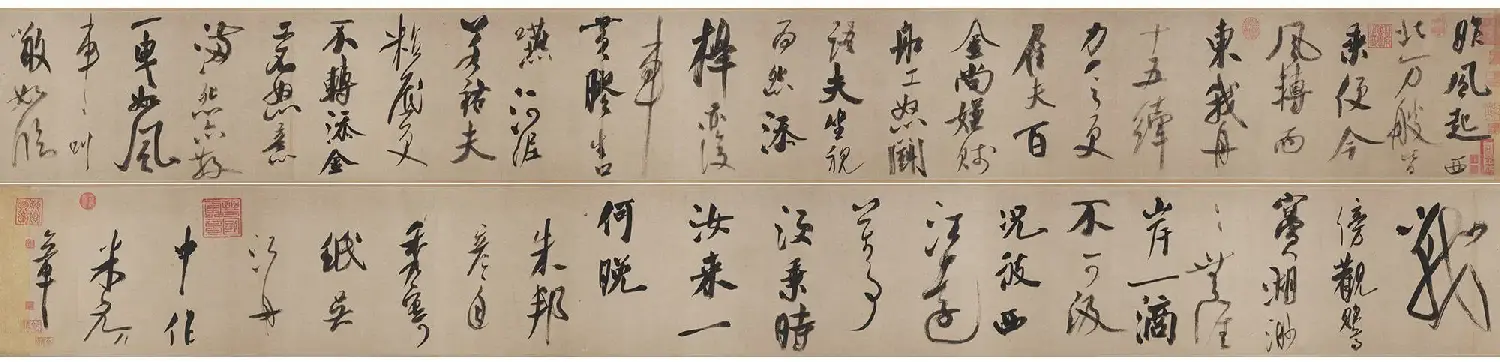 昨風起西
北万艘皆
乘便今
風轉而
東我舟
十五縴
力乏更
雇夫百
金尚嫌賤
船工怒鬬
語夫坐視
而怨添
槔亦復
車
黃膠生口
嚥河泥
若祐夫
粘底更
不轉添金
工不怒意
滿怨亦散
一曳如風
車叫
噉如臨
戰
傍觀鶯
竇湖渺
〻無涯
岸一滴
不可汲
況彼西
江遠
萬事
須乘時
汝來一
何晚
朱邦
彥自
秦寄
紙吳
江舟
中作
米元
章